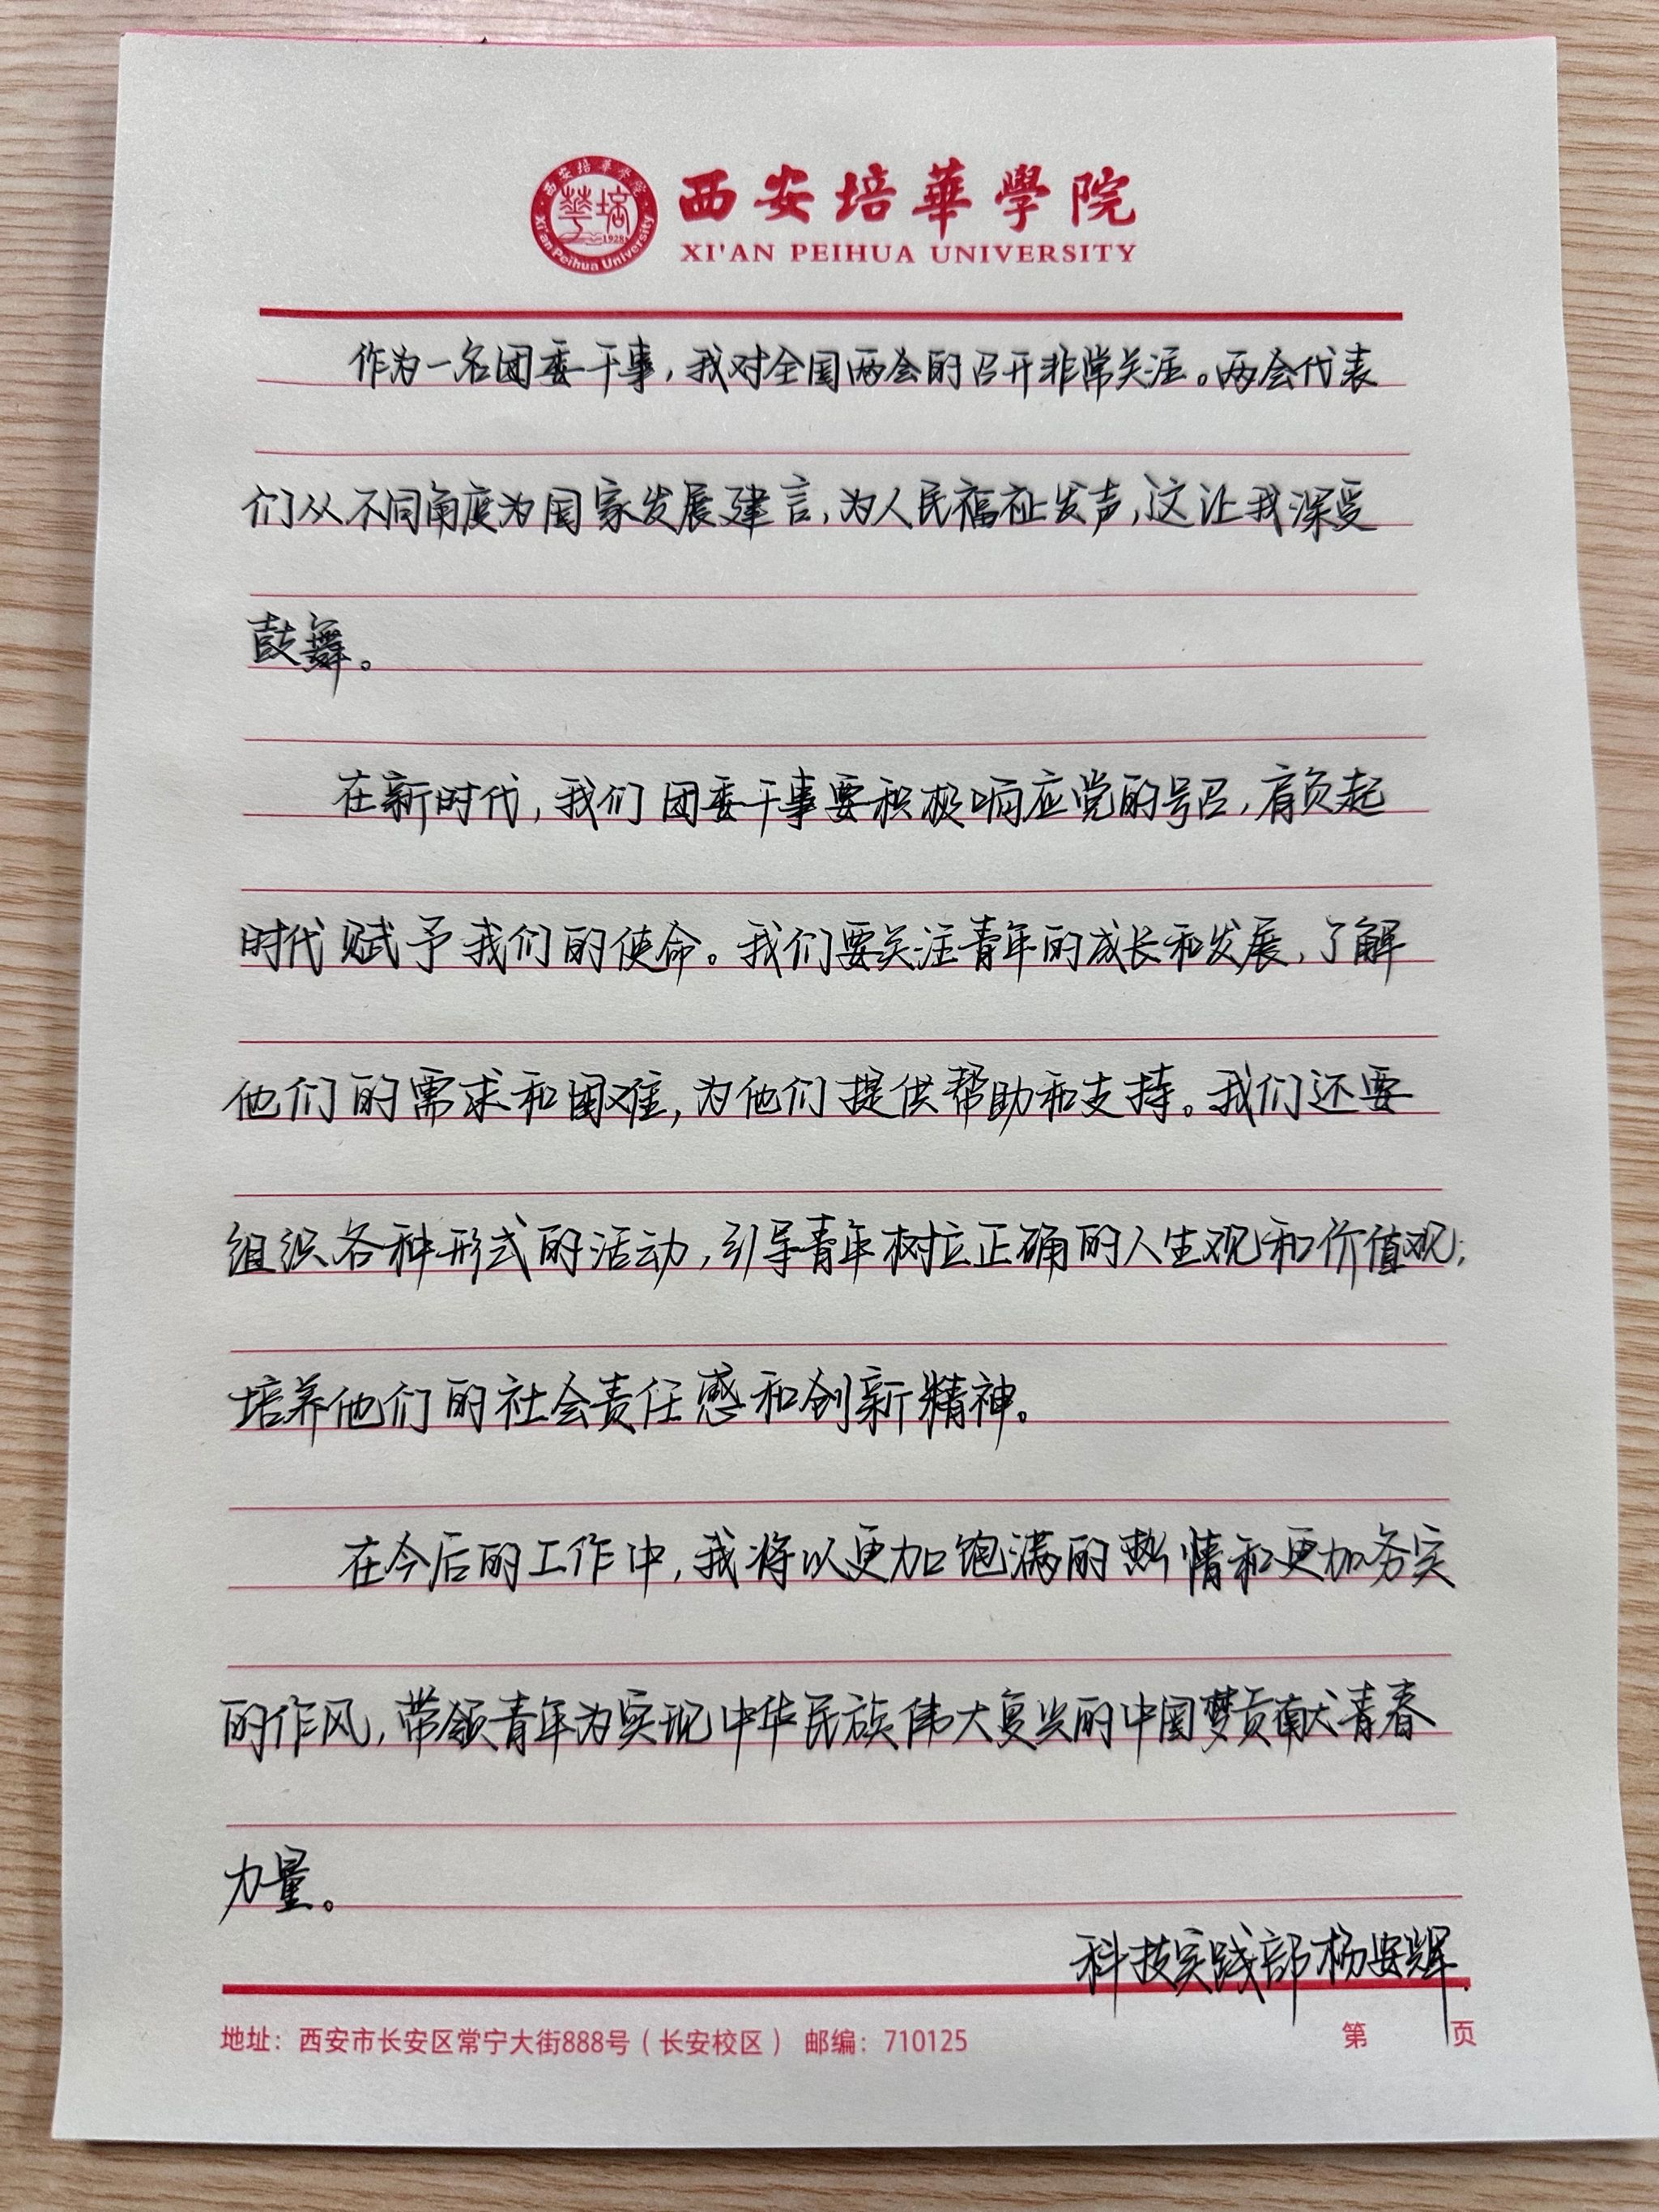 西安培華學院
XI'AN PEIHUA UNIVERSITY
西安培華學院
華培
1928
Xi'an Peihua University
作为一名团委干事，我对全国两会的召开非常关注。两会代表
们从不同角度为国家发展建言，为人民福祉发声，这让我深受
鼓舞。
在新时代，我们团委干事要积极响应党的号召，肩负起
时代赋予我们的使命。我们要关注青年的成长和发展，了解
他们的需求和困难，为他们提供帮助和支持。我们还要
组织各种形式的活动，引导青年树立正确的人生观和价值观，
培养他们的社会责任感和创新精神。
在今后的工作中，我将以更加饱满的热情和更加务实
的作风，带领青年为实现中华民族伟大复兴的中国梦贡献青春
力量。
科技实践部杨安辉.
地址：西安市长安区常宁大街888号（长安校区） 邮编：710125
第 页